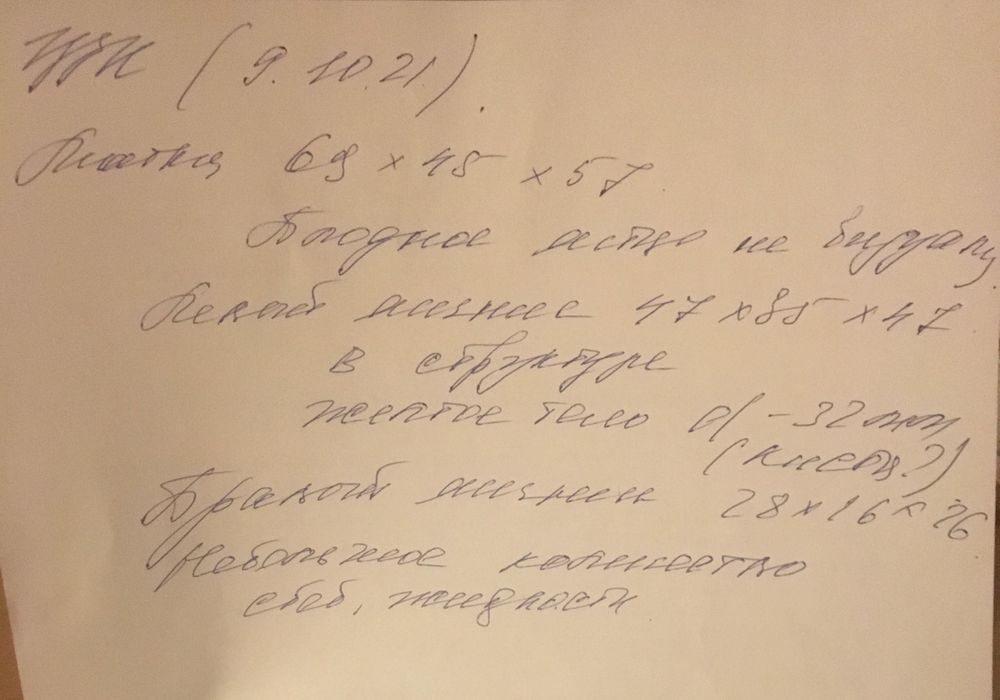 УЗИ (9.10.21).
Матка 69 × 45 × 57
Плодное яйцо не визуализ.
Левый яичник 47 × 35 × 47
в структуре
желтое тело d – 32 мм
(киста?)
Правый яичник 28 × 16 × 26
Небольшое количество
своб. жидкости